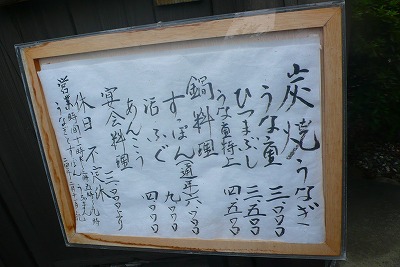 炭焼うなぎ
うな重 三、〇〇〇
ひつまぶし 三、五〇〇
うな重特上 四、五〇〇
鍋料理
すっぽん(通年) 六、〇〇〇
活ふぐ 九、〇〇〇
あんこう 四、〇〇〇
宴会料理 三、〇〇〇より
休日 不定休
営業時間